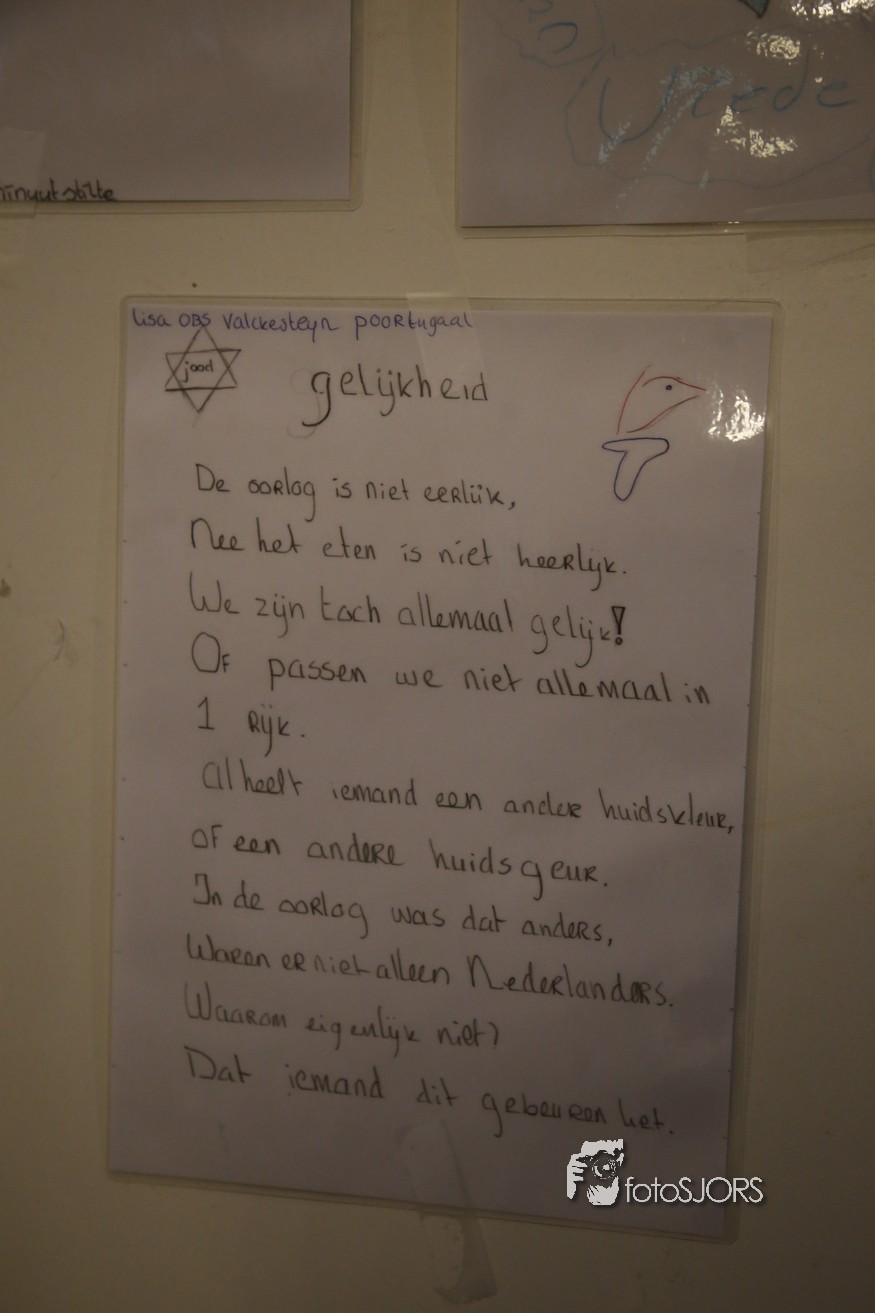 minuutstilte
Vrede
lisa OBS Valckesteyn poortugaal
jood
gelijkheid
De oorlog is niet eerlijk,
Nee het eten is niet heerlijk.
We zijn toch allemaal gelijk!
Of passen we niet allemaal in
1 rijk.
Al heeft iemand een ander huidskleur,
of een andere huidsgeur.
In de oorlog was dat anders,
Waren er niet alleen Nederlanders.
Waarom eigenlijk niet?
Dat iemand dit gebeuren liet.
fotoSJORS